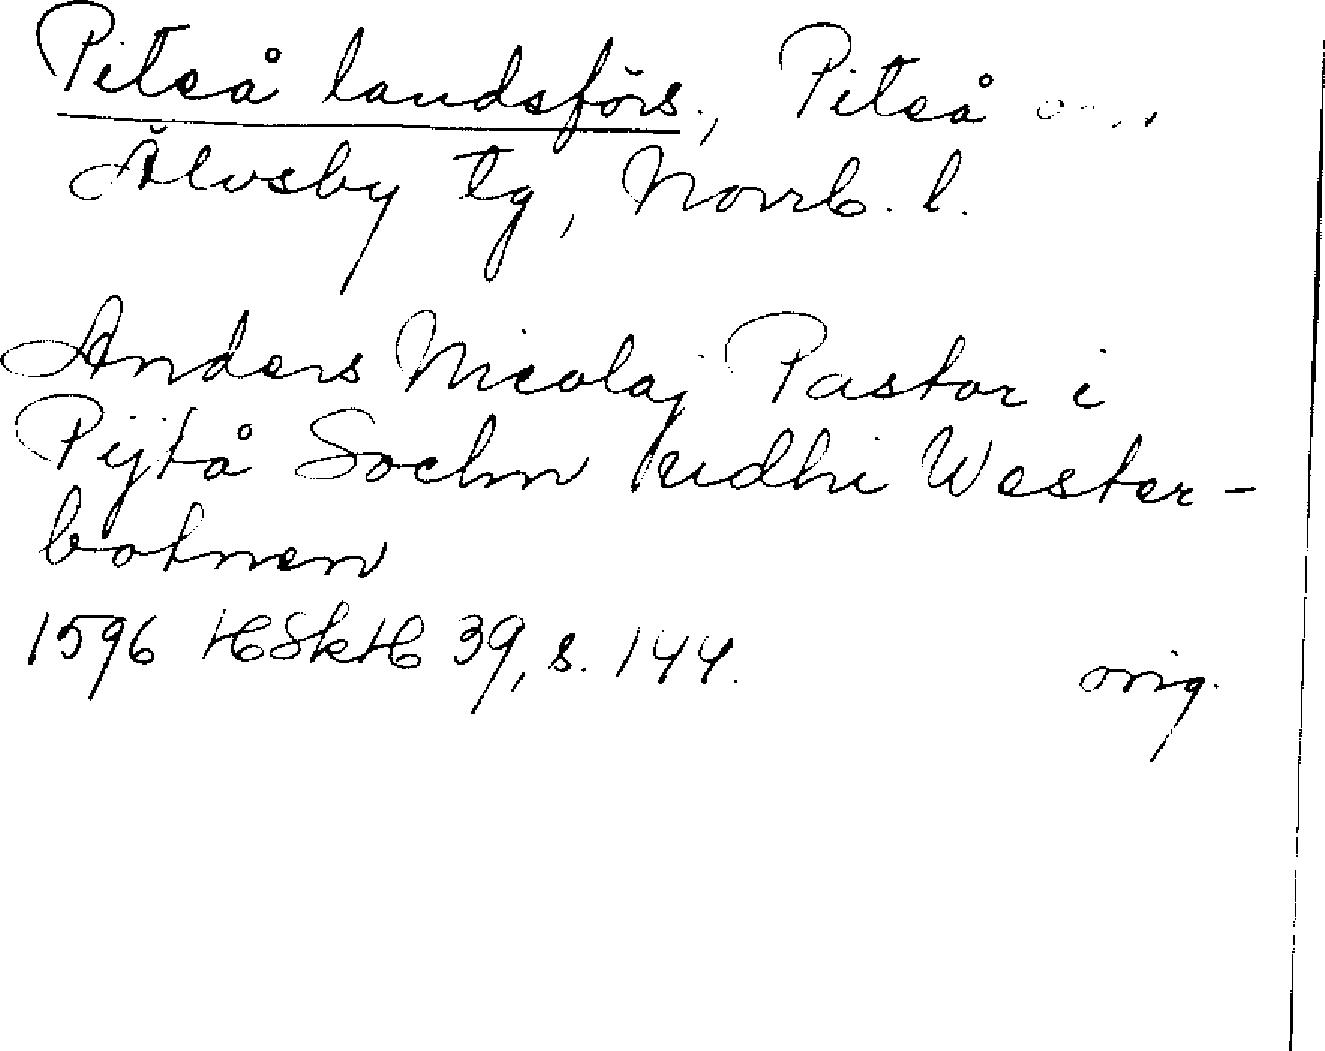 Piteå landsförs., Piteå
Älvsby tg, Norrb. l.
Anders Nicolaj Pastor i
Pijtå Sochn udhi Wester-
botnen
1596 HSkH 39, s. 144.
orig.